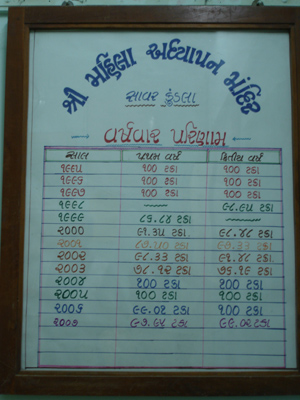 શ્રી મહિલા અધ્યાપન મંદિર
સાવર કુંડલા
વર્ષવાર પરિણામ
સાલ પ્રથમ વર્ષ દ્વિતીય વર્ષ
૧૯૯૫ ૧૦૦ ટકા ૧૦૦ ટકા
૧૯૯૬ ૧૦૦ ટકા ૧૦૦ ટકા
૧૯૯૭ ૧૦૦ ટકા ૧૦૦ ટકા
૧૯૯૮ ૯૮.૯૫ ટકા
૧૯૯૯ ૮૬.૮૪ ટકા
૨૦૦૦ ૯૧.૩૫ ટકા ૯૮.૪૮ ટકા
૨૦૦૧ ૮૭.૫૦ ટકા ૯૩.૩૩ ટકા
૨૦૦૨ ૯૮.૩૩ ટકા ૯૨.૪૮ ટકા
૨૦૦૩ ૭૮.૧૨ ટકા ૭૬.૧૯ ટકા
૨૦૦૪ ૧૦૦ ટકા ૧૦૦ ટકા
૨૦૦૫ ૧૦૦ ટકા ૧૦૦ ટકા
૨૦૦૬ ૯૯.૦૨ ટકા ૧૦૦ ટકા
૨૦૦૭ ૯૭.૬૪ ટકા ૯૯.૦૨ ટકા